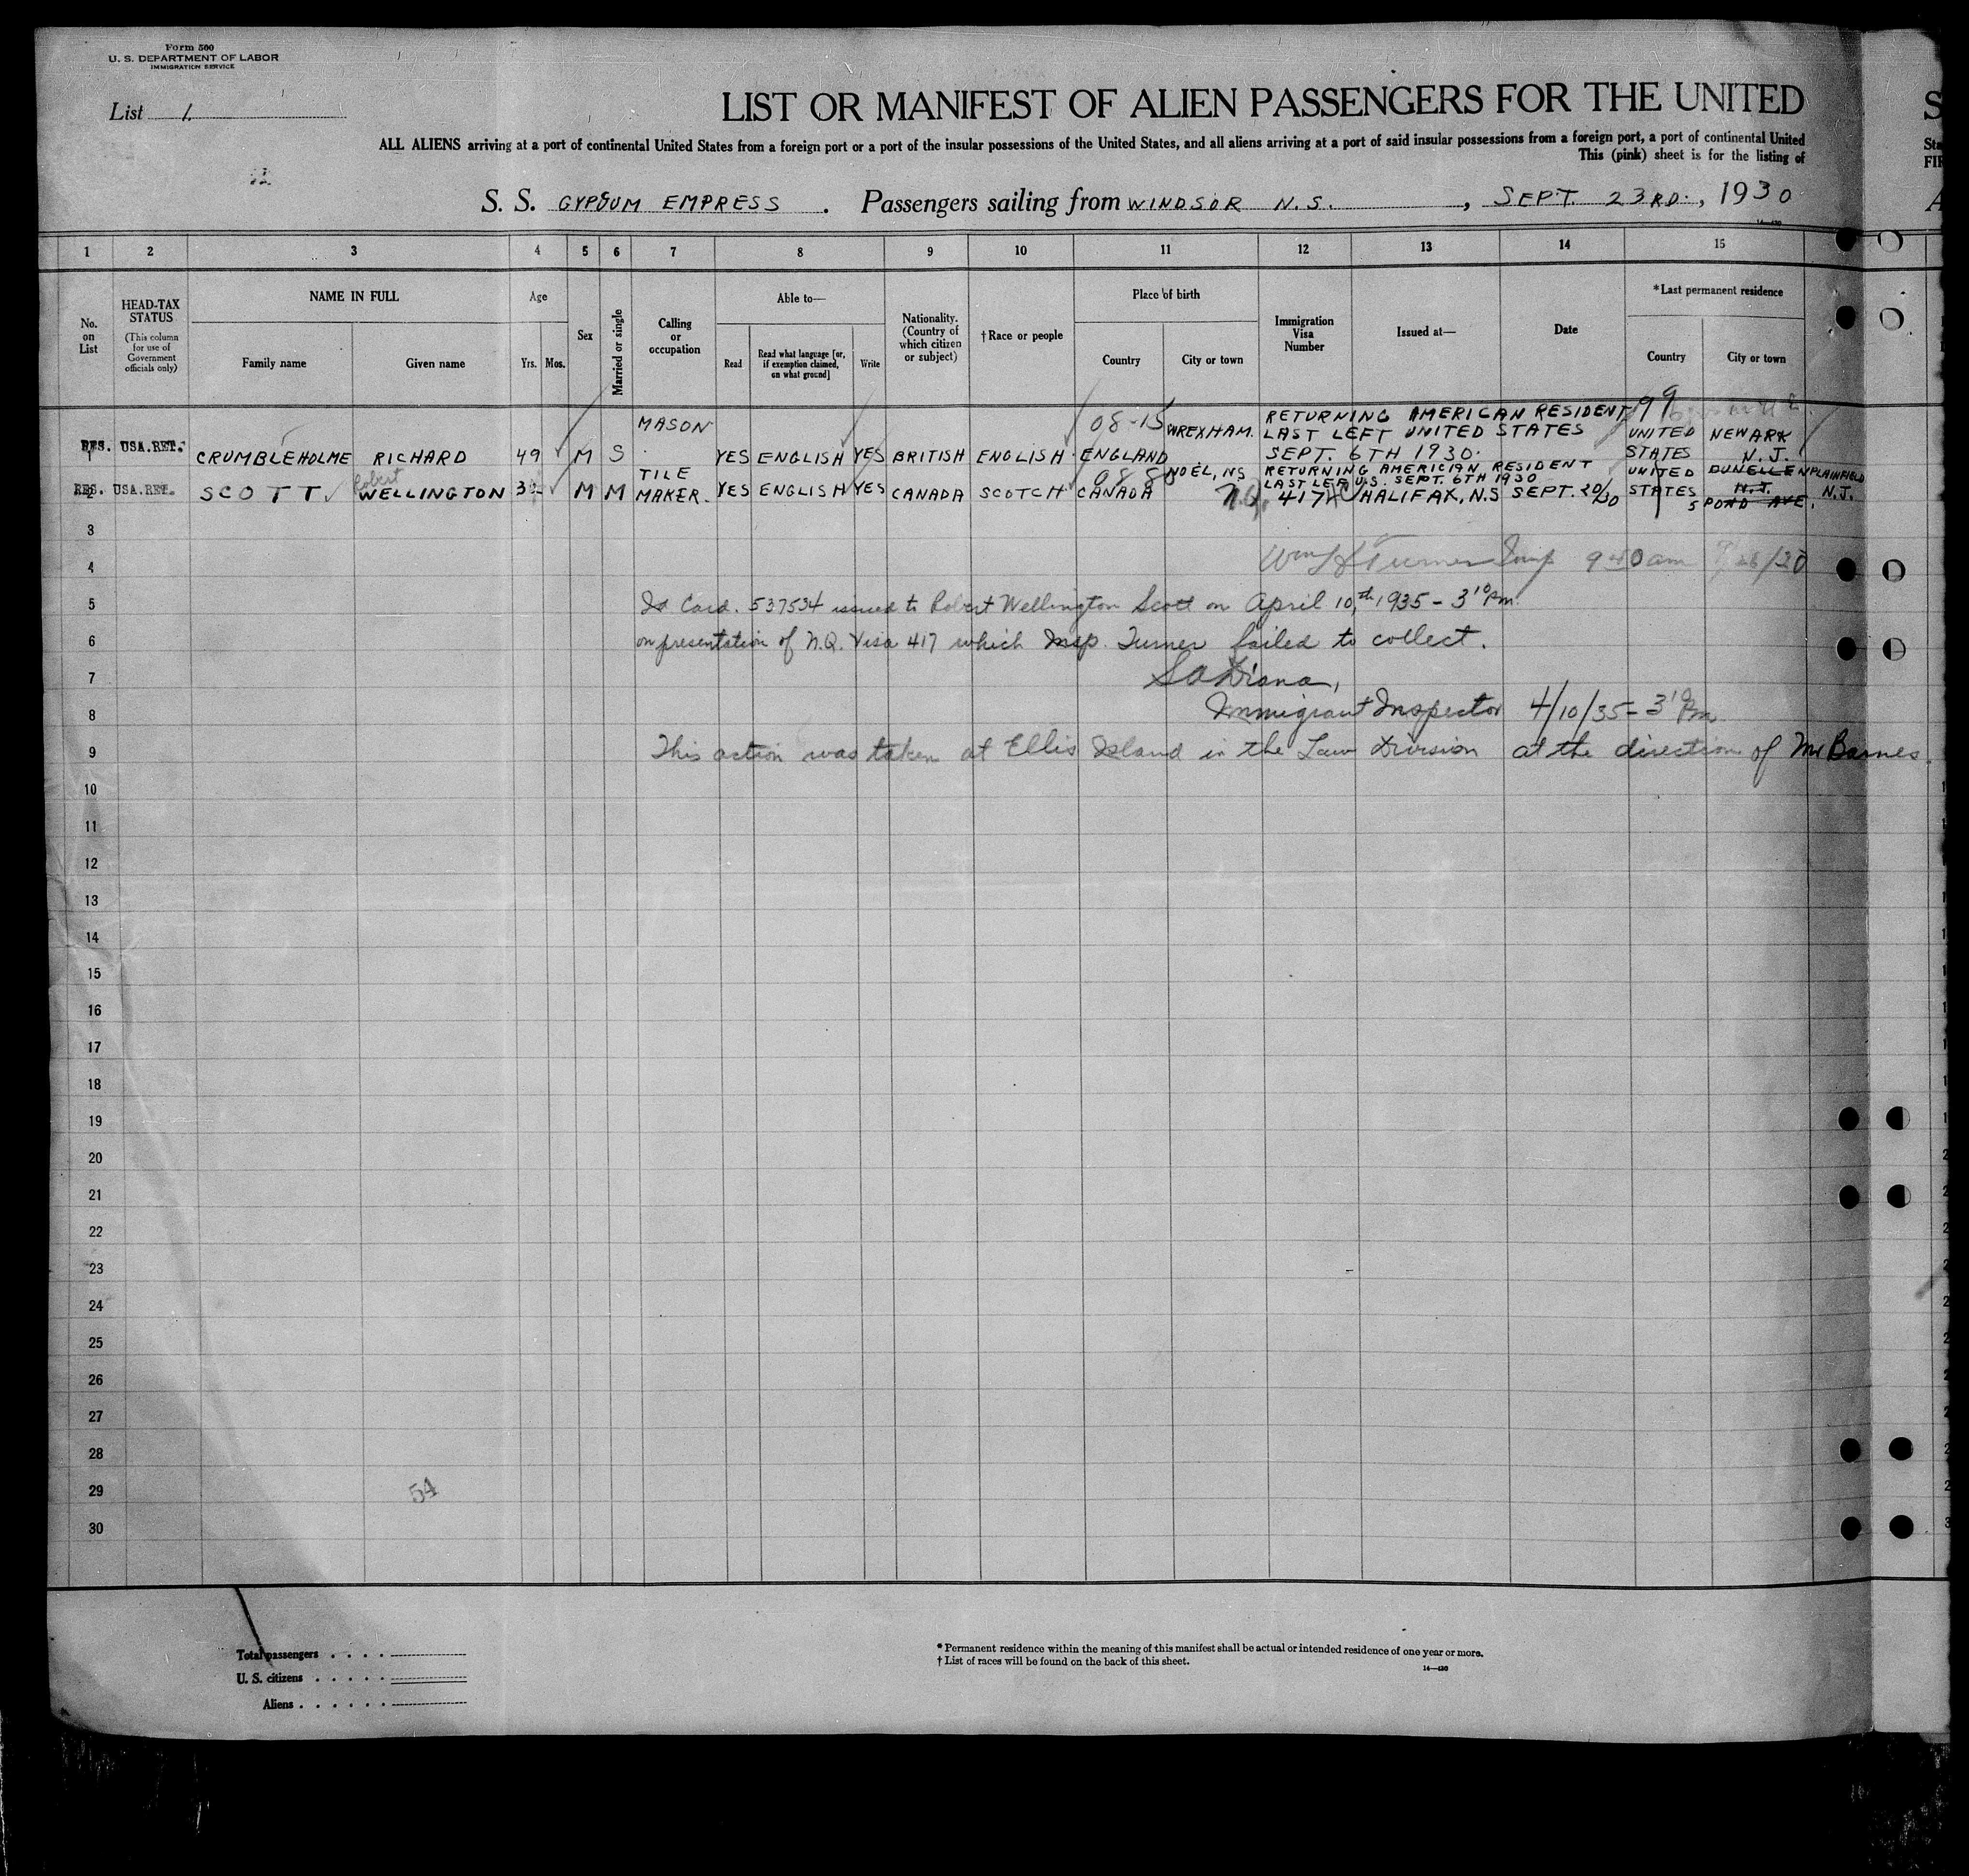 Form 500
U. S. DEPARTMENT OF LABOR
IMMIGRATION SERVICE
List 1.
LIST OR MANIFEST OF ALIEN PASSENGERS FOR THE UNITED
ALL ALIENS arriving at a port of continental United States from a foreign port or a port of the insular possessions of the United States, and all aliens arriving at a port of said insular possessions from a foreign port, a port of continental United
This (pink) sheet is for the listing of
S. S. GYPSUM EMPRESS . Passengers sailing from WINDSOR N.S. , SEPT. 23RD. , 1930
1 2 3 4 5 6 7 8 9 10 11 12 13 14 15
No. on List
HEAD-TAX STATUS
(This column for use of Government officials only)
NAME IN FULL
Family name Given name
Age
Yrs. Mos.
Sex
Married or single
Calling or occupation
Able to—
Read
Read what language [or, if exemption claimed, on what ground]
Write
Nationality. (Country of which citizen or subject)
† Race or people
Place of birth
Country City or town
Immigration Visa Number
Issued at—
Date
*Last permanent residence
Country City or town
MASON 08-15 WREXHAM. RETURNING AMERICAN RESIDENT 99
LAST LEFT UNITED STATES UNITED NEWARK
RES. USA.RET. CRUMBLEHOLME RICHARD 49 M S YES ENGLISH YES BRITISH ENGLISH ENGLAND SEPT. 6TH 1930. STATES N.J.
TILE NOEL, NS RETURNING AMERICIAN RESIDENT UNITED DUNELLEN PLAINFIELD
Robert LAST LEF U.S. SEPT. 6TH 1930 N.J. N.J.
RES. USA.RET. SCOTT WELLINGTON M M MAKER. YES ENGLISH YES CANADA SCOTCH CANADA N.Q. 417 HALIFAX, N.S SEPT. 20/30 STATES
5 POND AVE.
3
4 Wm Turner Insp 9 40 am
5 Id Card. 537534 issued to Robert Wellington Scott on April 10,th 1935 - 3 10 Pm.
6 on presentation of N.Q. Visa 417 which Insp. Turner failed to collect.
7
8 Immigrant Inspector 4/10/35 - 3 10 Pm
9 This action was taken at Ellis Island in the Law Division at the direction of Mr Barnes.
10
11
12
13
14
15
16
17
18
19
20
21
22
23
24
25
26
27
28
29
54
30
Total passengers
U. S. citizens
Aliens
* Permanent residence within the meaning of this manifest shall be actual or intended residence of one year or more.
† List of races will be found on the back of this sheet.
14—430